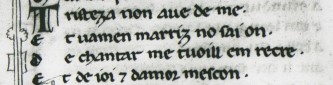 Tristeza non aue de me.
E t uamen marriz no sai on.
D e chantar me tuoill em recre.
E t de ioi ⁊ damor mescon.